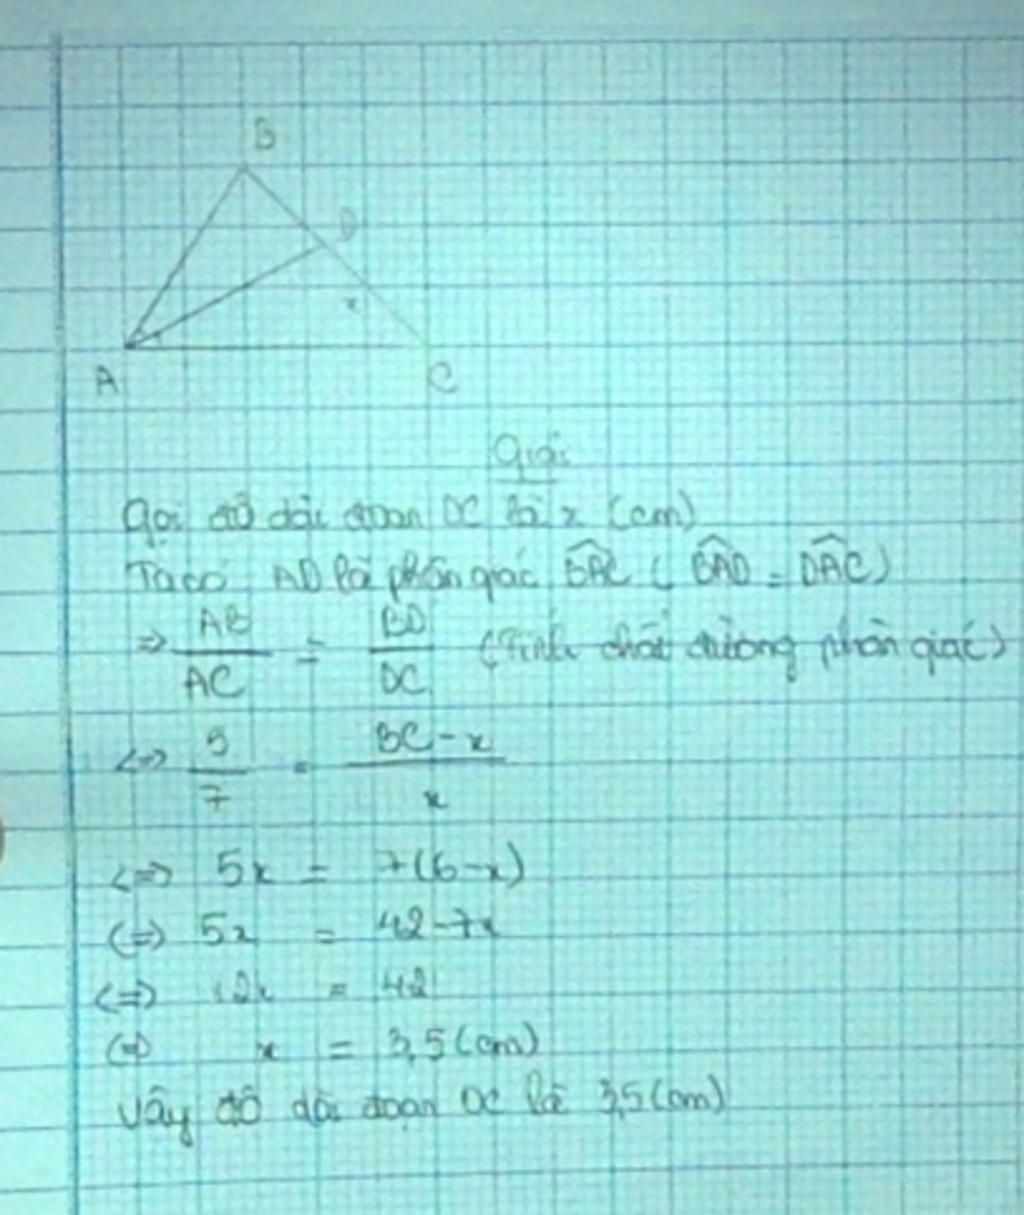 B
D
x
A
C
Giải
Gọi độ dài đoạn DC là x (cm)
Ta có AD là phân giác \widehat{BAC} ( \widehat{BAD} = \widehat{DAC} )
=> AB/AC = BD/DC (Tính chất đường phân giác)
<=> 5/7 = BC-x/x
<=> 5x = 7(6-x)
<=> 5x = 42-7x
<=> 12x = 42
<=> x = 3,5(cm)
Vậy độ dài đoạn DC là 3,5(cm)